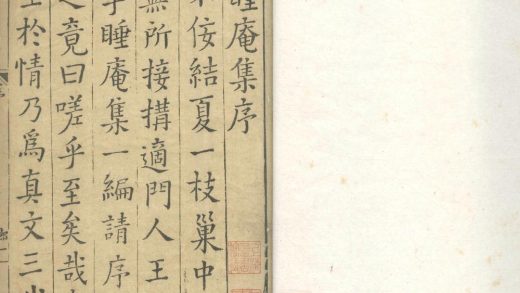 睡庵集序
佞結夏一枝巢中
無所接搆適門人王
睡庵集一編請序
竟曰嗟乎至矣哉
於情乃爲真文三